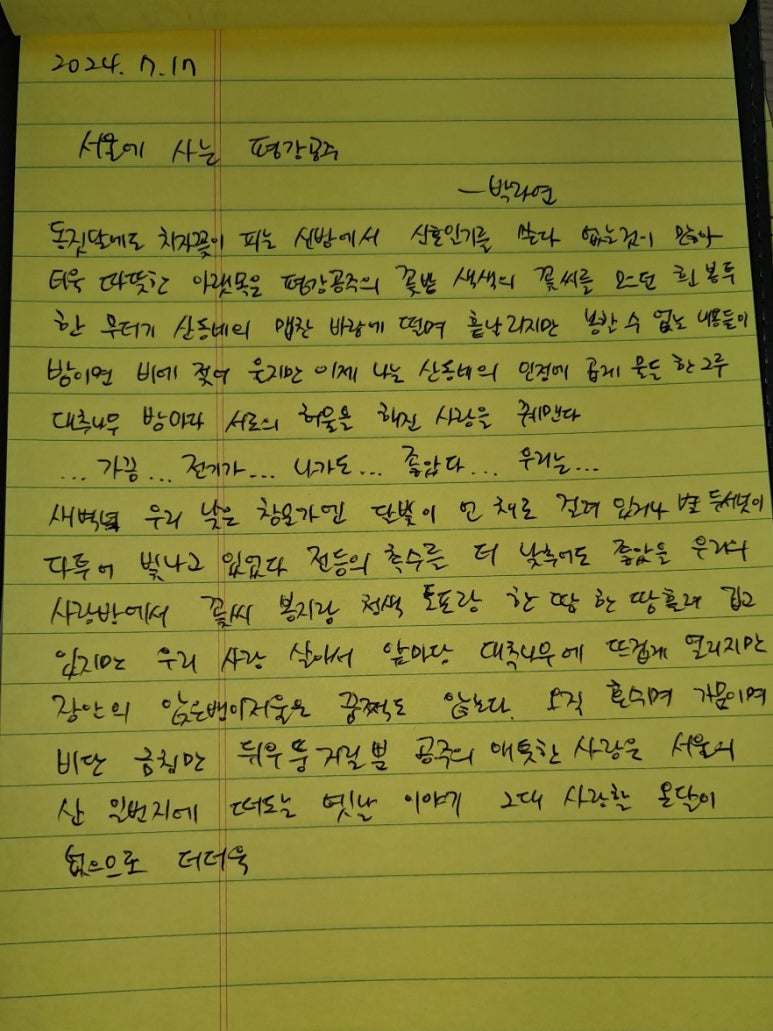 2024. 7. 17
서울에 사는 평강공주
—박라연
동짓달에도 치자꽃이 피는 신방에서 신혼일기를 쓴다 없는 것이 많아
더욱 따뜻한 아랫목은 평강공주의 꽃밭 색색의 꽃씨를 모으던 흰 봉투
한 무더기 산동네의 맵찬 바람에 떨며 흩날리지만 봉할 수 없는 내용들이
밤이면 비에 젖어 울지만 이제 나는 산동네의 인정에 곱게 물든 한 그루
대추나무 밤마다 서로의 허물을 해진 사랑을 꿰맨다
... 가끔... 전기가... 나가도... 좋았다... 우리는...
새벽녘 우리 낮은 창문가엔 달빛이 언 채로 걸려 있거나 별 두서넛이
다투어 빛나고 있었다 전등의 촉수를 더 낮추어도 좋았을 우리의
사랑방에서 꽃씨 봉지랑 청색 도포랑 한 땀 한 땀 흘려 깁고
있지만 우리 사랑 살아서 앞마당 대추나무에 뜨겁게 열리지만
장안의 앉은뱅이저울은 꿈쩍도 않는다. 오직 혼수며 가문이며
비단 금침만 뒤우뚱거릴 뿐 공주의 애틋한 사랑은 서울의
산 일번지에 떠도는 옛날 이야기 그대 사랑할 온달이
없으므로 더더욱